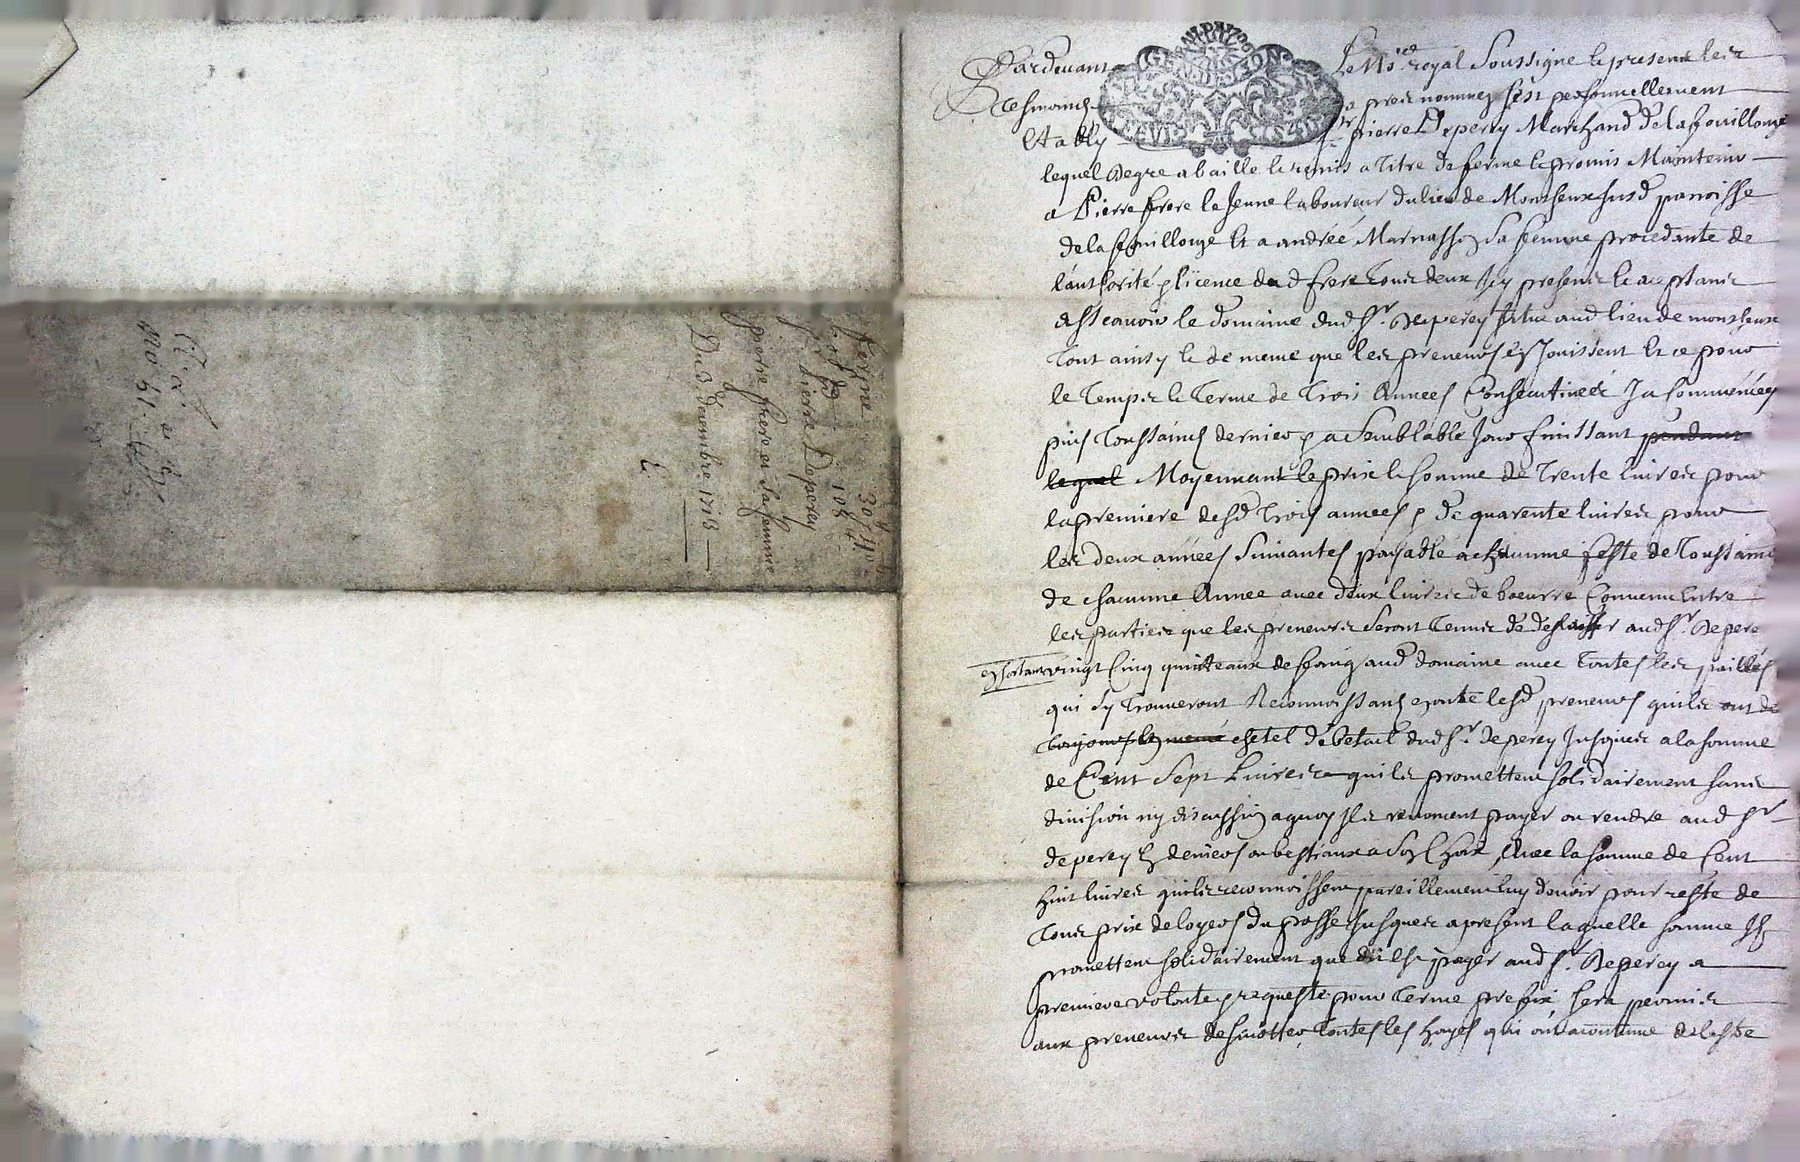 Pardevant Le No.re royal Soussigne & presents les
tesmoins apres nommez s'est personnellement
Estably Sr pierre Deperey Marchand de lafouillouze
lequel Degre a baille & remis a titre de ferme & promis Maintenir
a Pierre frere le Jeune laboureur du lieu de Monsheux susd parroisse
de lafouillouze Et a andréé Marnasse sa femme procedante de
l'authorité & licence dud frere tous deux Icy presents & aceptants
assavoir le domaine dud Sr. Deperey situe aud lieu de monsheux
tout ainsy & de meme que les preneurs en Jouissent Et ce pour
le Temps & Terme de Trois Annees Consecutives Ja Commencées
puis Toussaincts dernier & a Semblable Jour finissant pendant
lequel Moyennant le prix & somme de Trente livres pour
la premiere desd Trois années & de quarente livres pour
les deux années Suivantes payable a chacune feste de Toussaints
de chacune Année avec deux livres de boeurre Convenu Entre
les parties que les preneurs seront Tenus de delaisser aud Sr. Deperey
vingt Cinq quinteaux de foing aud domaine avec toutes les pailles
qui sy trouveront Reconnoissans lesd preneurs quils ont de
chetel de betail dud Sr. deperey Jusques a la somme
de Cent Sept Livres quils promettent solidairement sans
division ny discussion a quoy Ils renoncent payer ou rendre aud Sr
deperey En deniers ou bestiaux a Son Choix, Avec la somme de Cent
huit livres quils reconnoissent pareillement luy devoir pour reste de
tous prix de loyers du passe Jusques a present laquelle somme Ils
promettent solidairement que dessus payer aud Sr. Deperey a
premiere volonte & requeste pour terme prefix sera permis
aux preneurs toutes les hayes qui ont acoutume de lestre
ferme
Sr pierre Deperey
pierre frere et sa femme
Du 3 decembre 1713
30 lt
108 lt